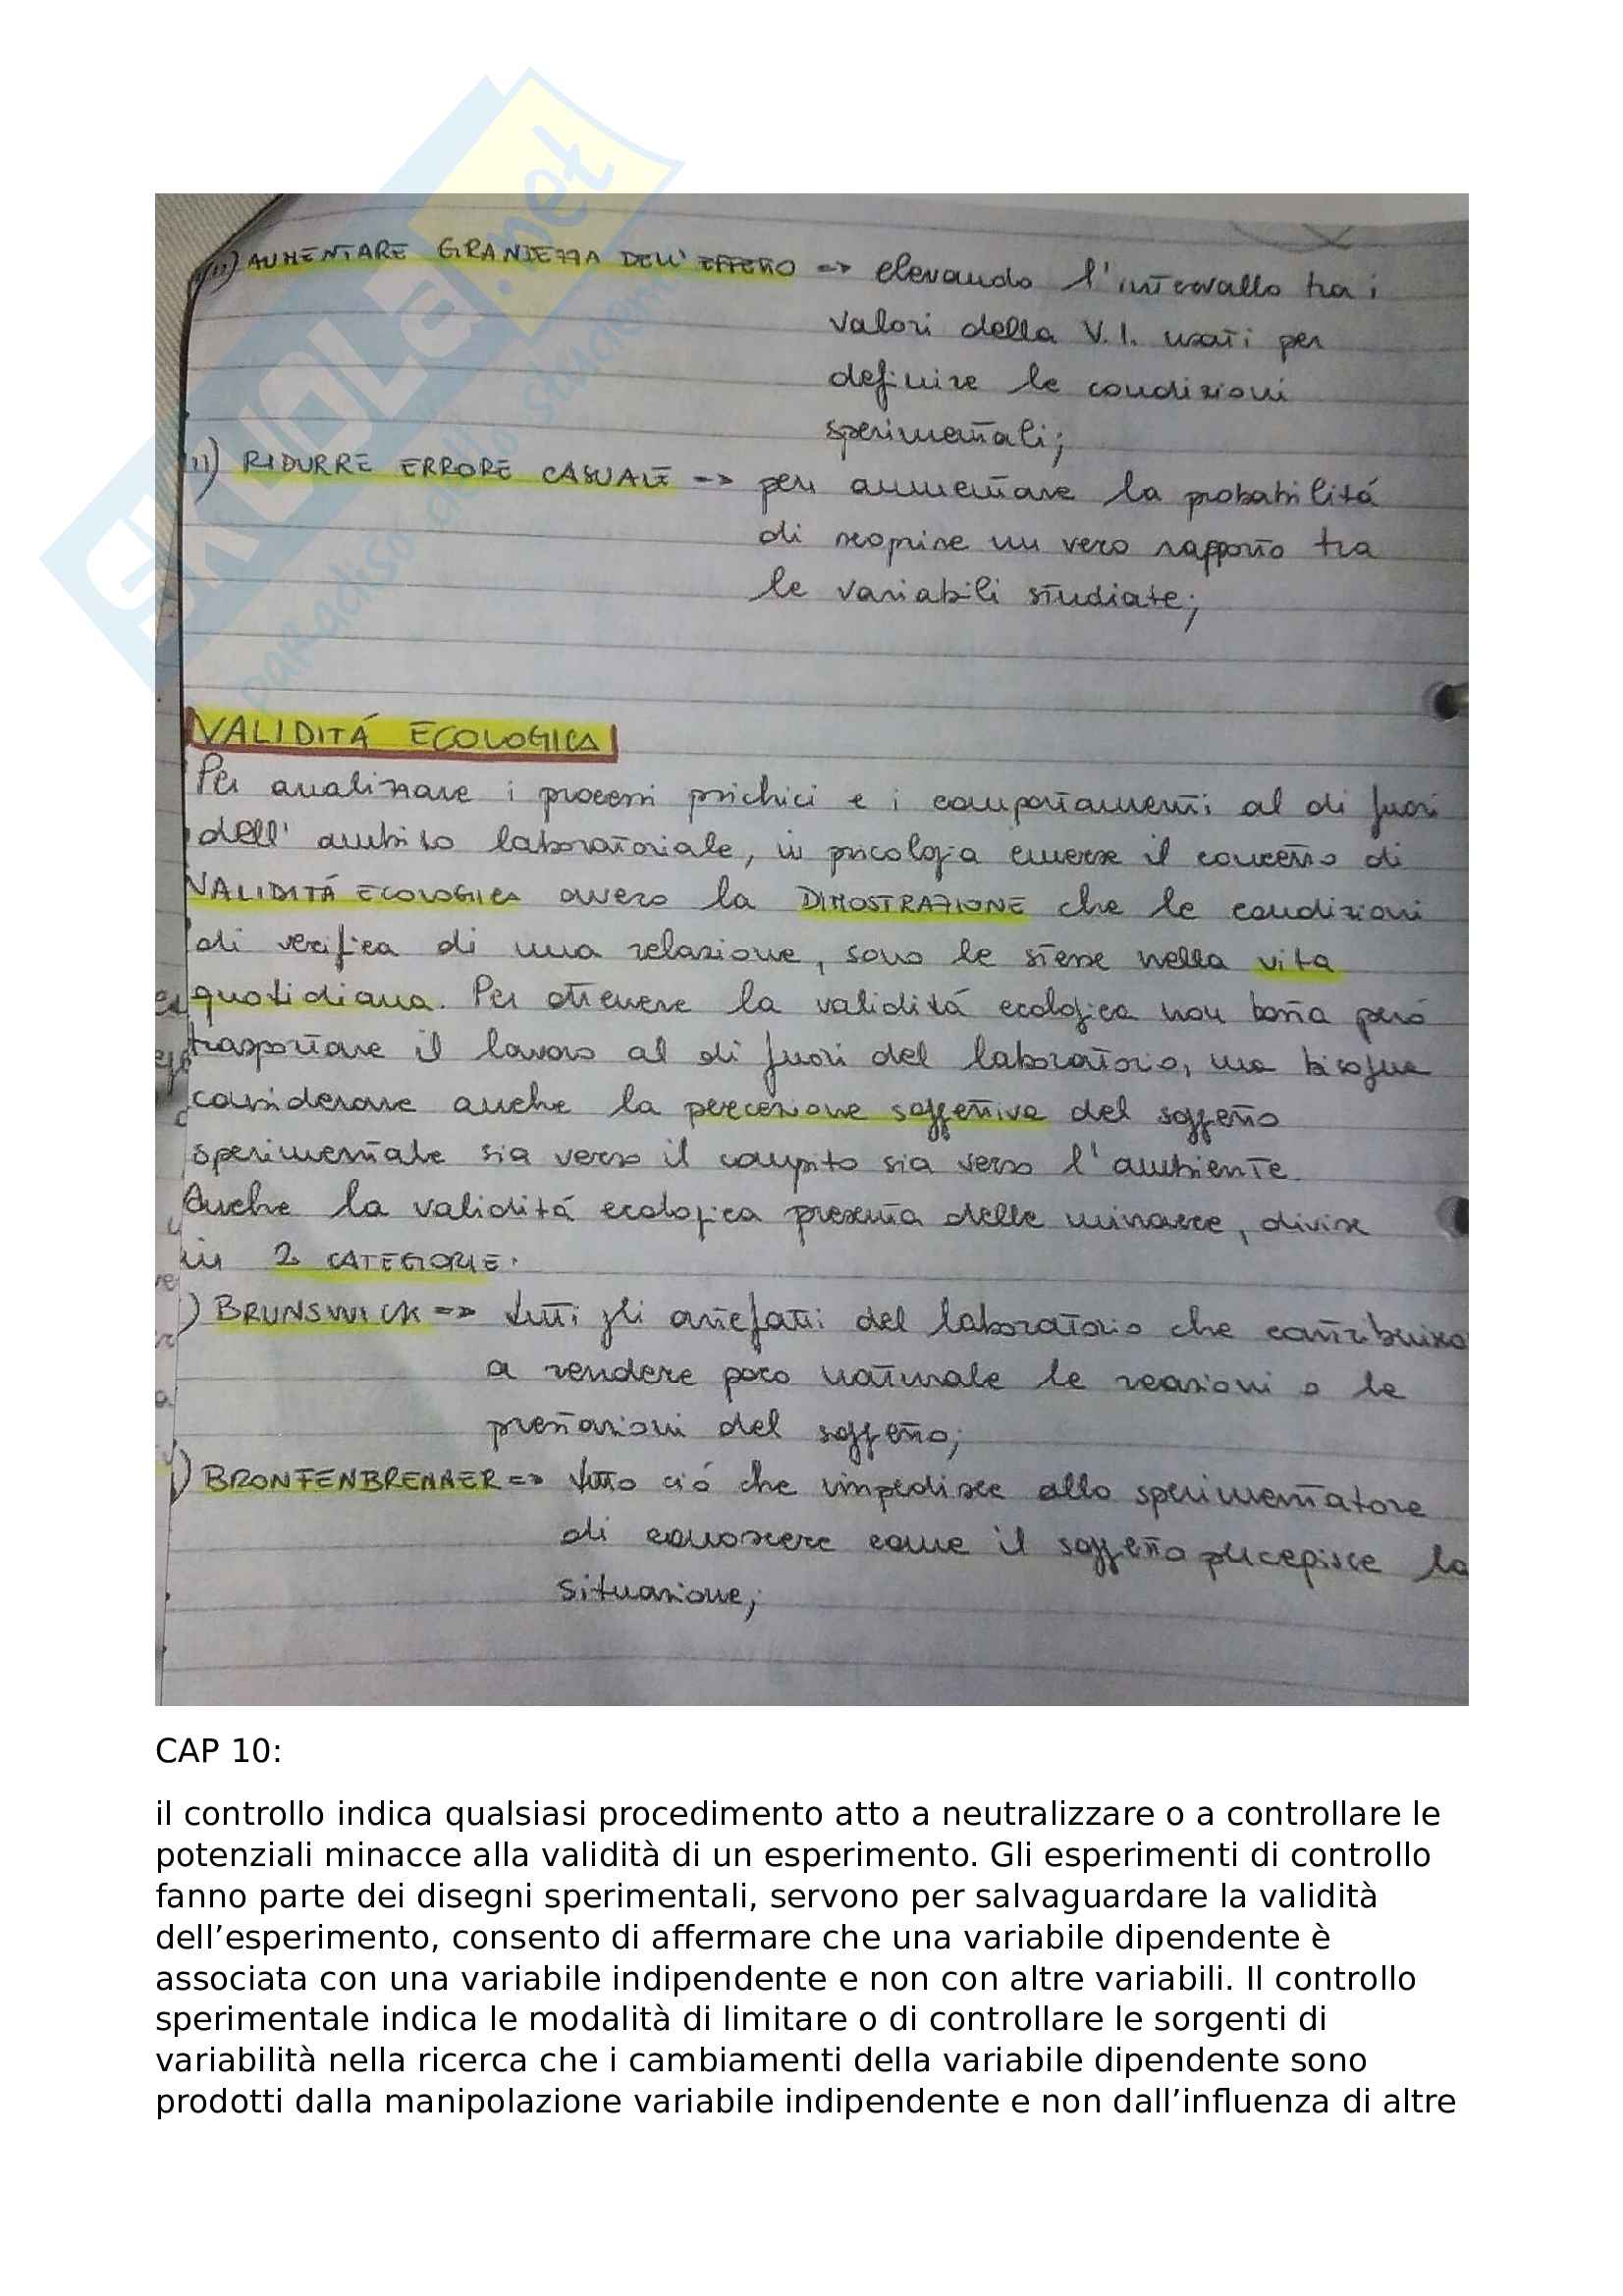 SKUOLA.net
paradiso dello studente
11) AUMENTARE GRANDEZZA DELL' EFFETTO => elevando l'intervallo tra i
valori della V.I. usati per
definire le condizioni
sperimentali;
11) RIDURRE ERRORE CASUALE => per aumentare la probabilitá
di scoprire un vero rapporto tra
le variabili studiate;
VALIDITÁ ECOLOGICA
Per analizzare i processi psichici e i comportamenti al di fuori
dell' ambito laboratoriale, in psicologia emerse il concetto di
VALIDITÁ ECOLOGICA ovvero la DIMOSTRAZIONE che le condizioni
di verifica di una relazione, sono le stesse nella vita
quotidiana. Per ottenere la validitá ecologica non basta peró
trasportare il lavoro al di fuori del laboratorio, ma bisogna
considerare anche la percezione soggettiva del soggetto
sperimentale sia verso il compito sia verso l'ambiente.
Anche la validitá ecologica presenta delle minacce, divise
in 2 CATEGORIE:
) BRUNSWICK => tutti gli artefatti del laboratorio che contribuisco
a rendere poco naturale le reazioni o le
prestazioni del soggetto;
) BRONFENBRENNER => tutto ció che impedisce allo sperimentatore
di conoscere come il soggetto percepisce la
situazione;
CAP 10:
il controllo indica qualsiasi procedimento atto a neutralizzare o a controllare le
potenziali minacce alla validità di un esperimento. Gli esperimenti di controllo
fanno parte dei disegni sperimentali, servono per salvaguardare la validità
dell’esperimento, consento di affermare che una variabile dipendente è
associata con una variabile indipendente e non con altre variabili. Il controllo
sperimentale indica le modalità di limitare o di controllare le sorgenti di
variabilità nella ricerca che i cambiamenti della variabile dipendente sono
prodotti dalla manipolazione variabile indipendente e non dall’influenza di altre